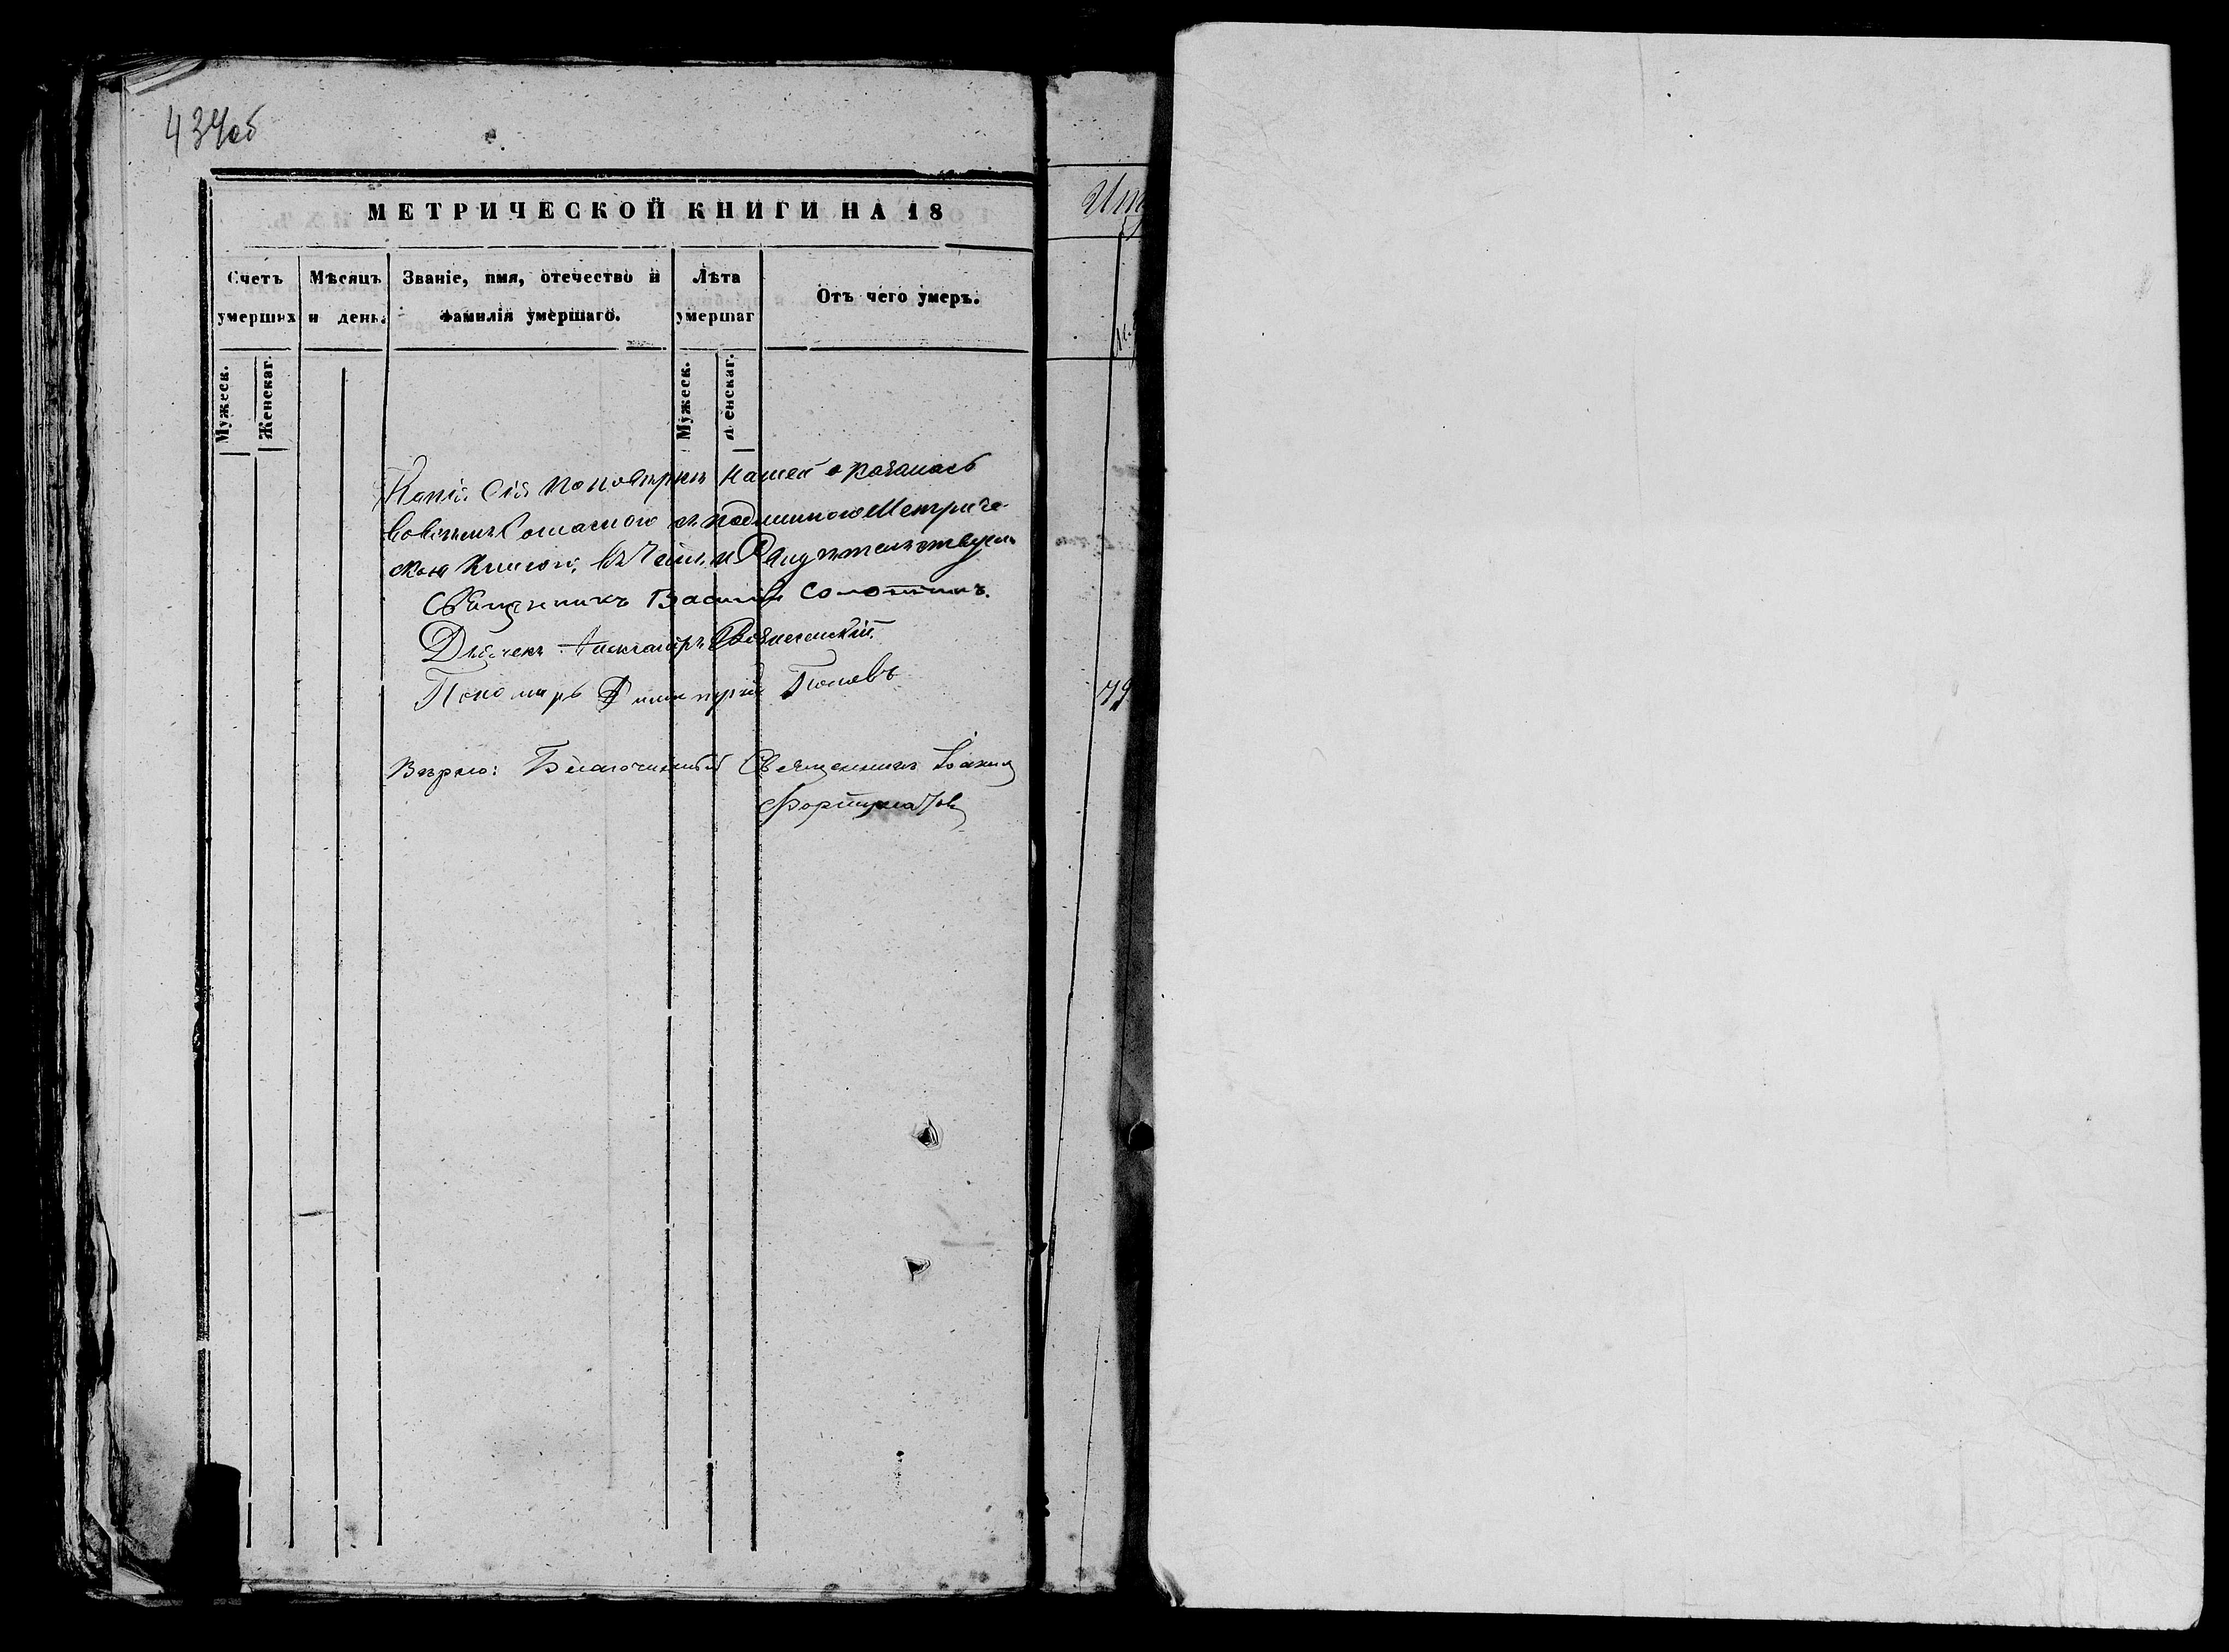 434об
МЕТРИЧЕСКОЙ КНИГИ НА 18
Счетъ умершихъ
Мѣсяцъ и день.
Званіе, имя, отечество и фамилія умершаго.
Лѣта умершаг
Отъ чего умеръ.
Мужеск.
Женскаг.
Мужеск.
Женскаг.
Копія Сія по повѣркѣ нашей оказалась
во всемъ согласною съ подлинною Метриче-
скою Книгою, въ чемъ и Свидѣтельствуемъ
Священникъ Василій
Дьячекъ Александръ Вознесенский
Пономарь Димитрій Поповъ
Вѣрно: Благочинный Священникъ Іоаннъ
Фортунатовъ
79